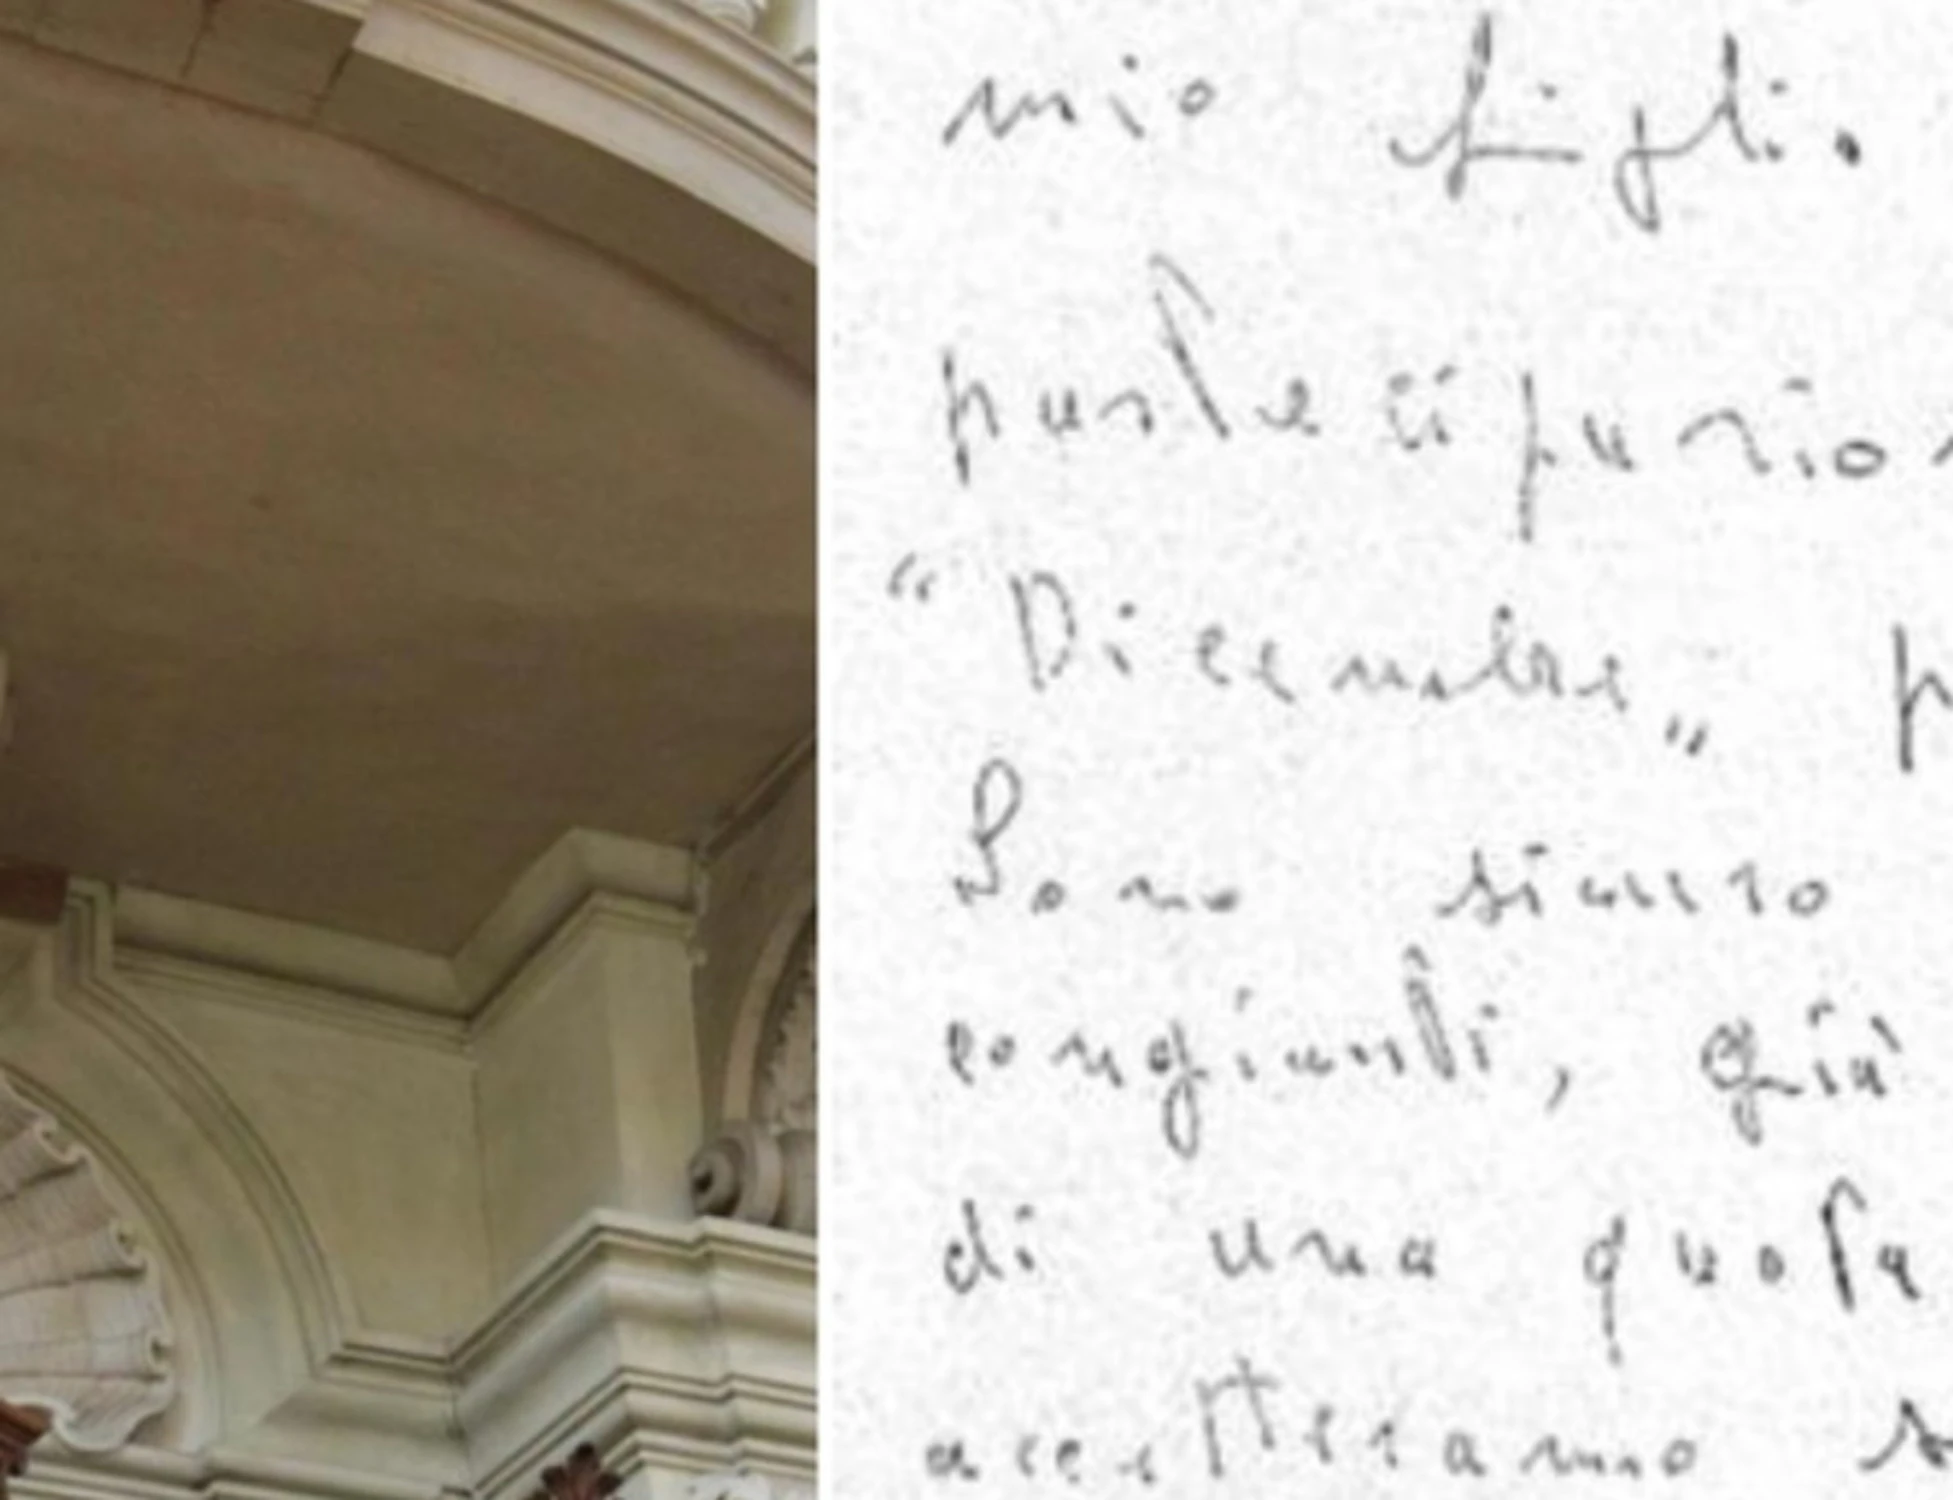 mio figli.
partecipazion
"Dicembre„ p
Sono sicuro
congiunti, già
di una quota
accetteranno s